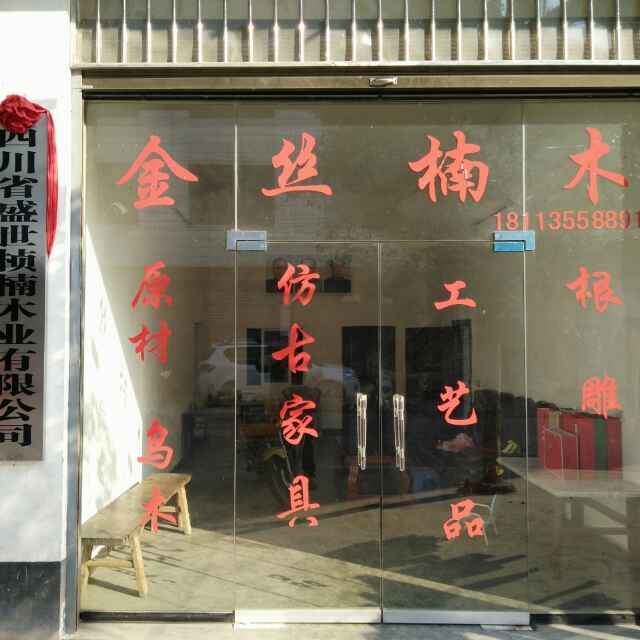 四川省盛世桢楠木业有限公司
金丝楠木
18113558891
原材乌木
仿古家具
工艺品
根雕